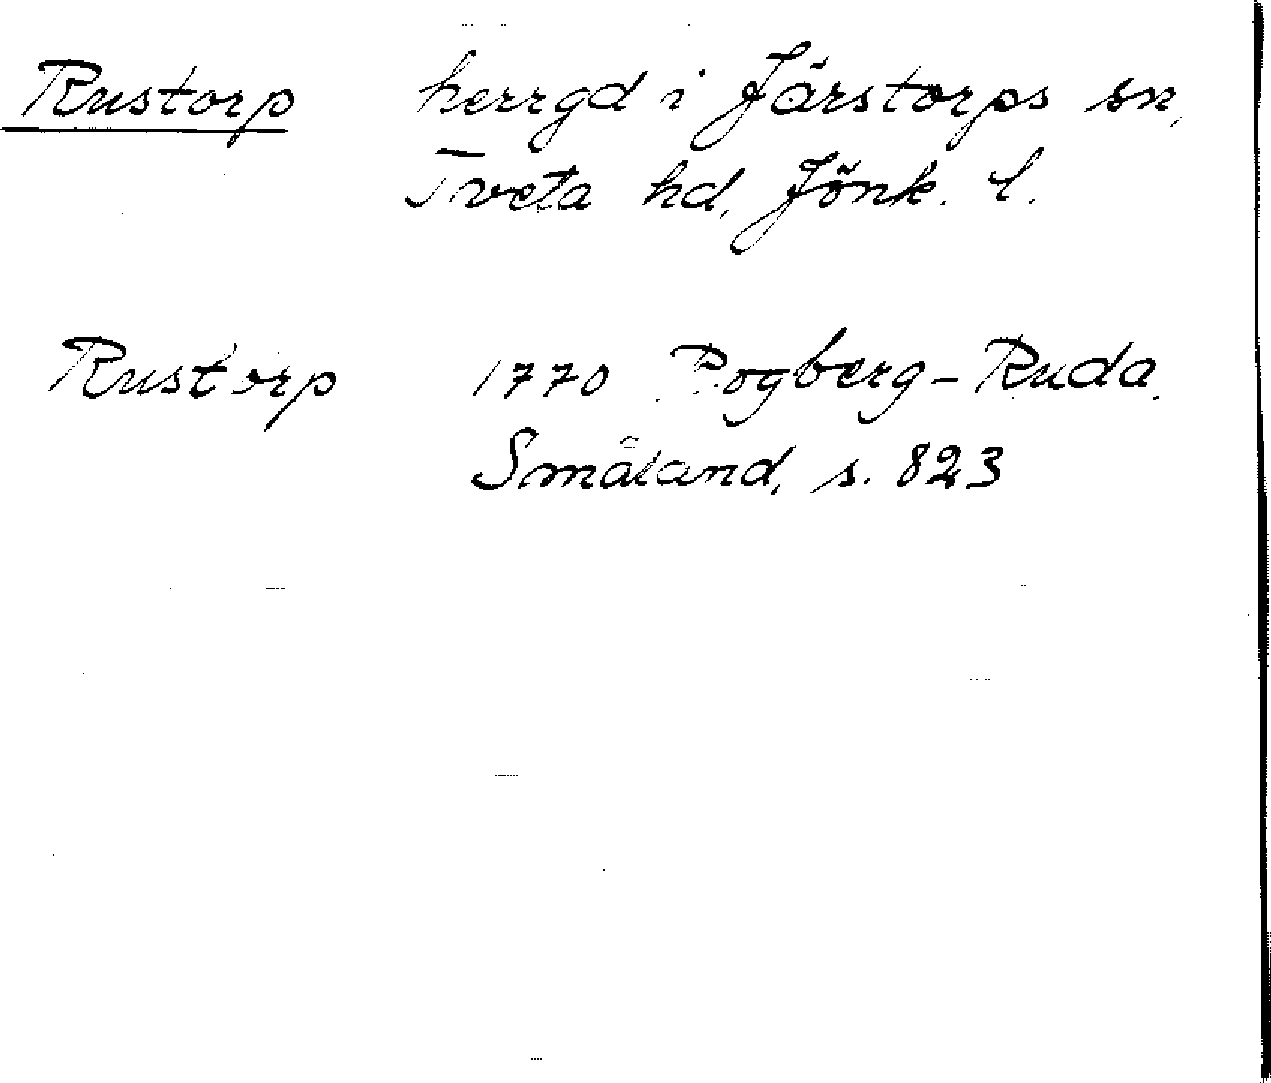 Rustorp herrgd i Järstorps sn,
Tveta hd, Jönk. l.
Rustorp 1770 Rogberg-Ruda
Småland, s. 823